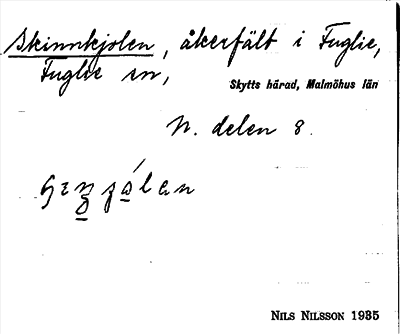 Skinnkjolen, åkerfält i Fuglie,
Fuglie sn,
Skytts härad, Malmöhus län
N. delen 8.
NILS NILSSON 1935